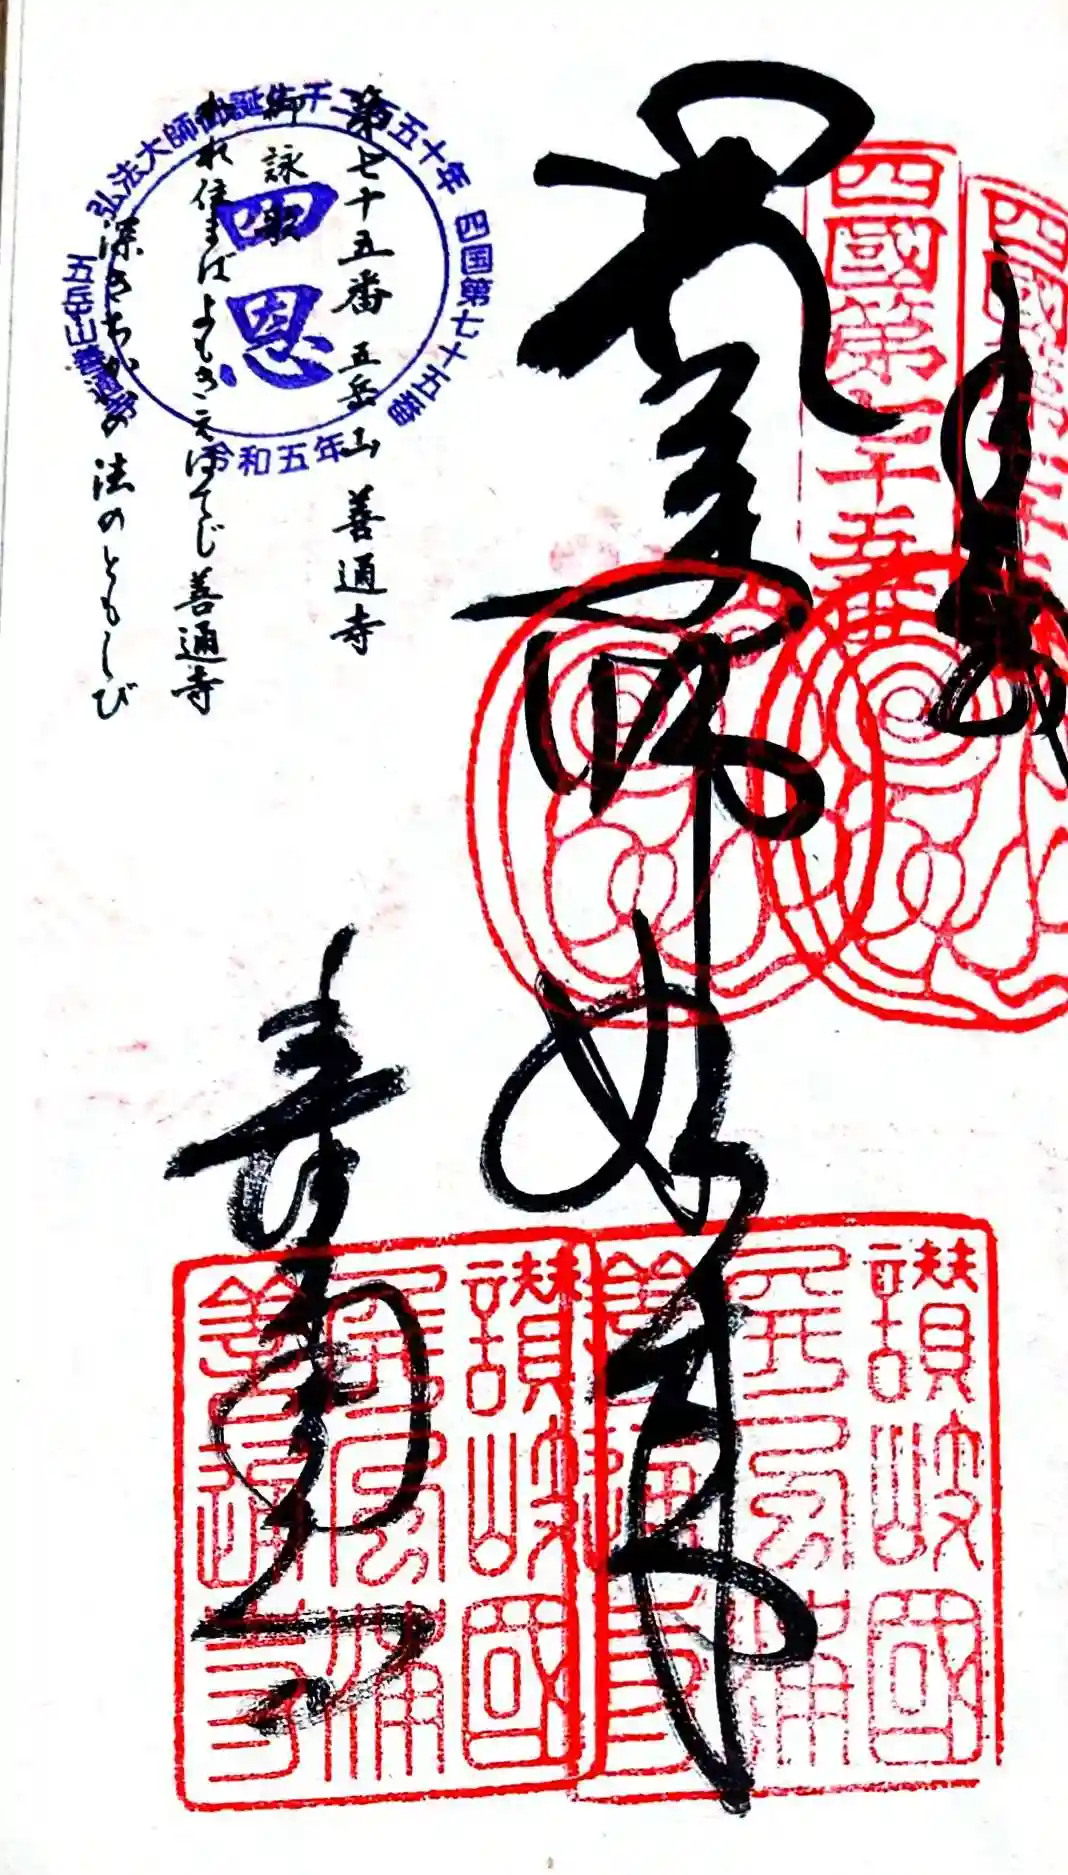 奉
納
薬師如来
善通寺
四國第七十五番
四國第七十五番
讃岐國
屏風浦
善通寺
讃岐國
屏風浦
善通寺
第七十五番 五岳山 善通寺
御詠歌
われ住まばよもきえはてじ善通寺
深きちかひの法のともしび
弘法大師御誕生千二百五十年
四国第七十五番
令和五年
五岳山善通寺
四恩